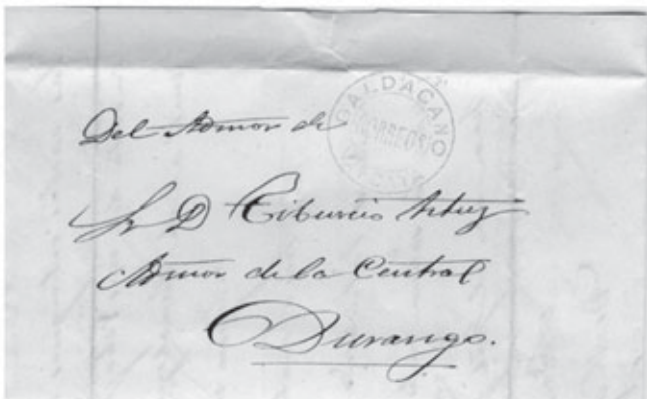 Del Admor de
GALDACANO
CORREOS
Sr D Tiburcio
Admor de la Central
Durango.